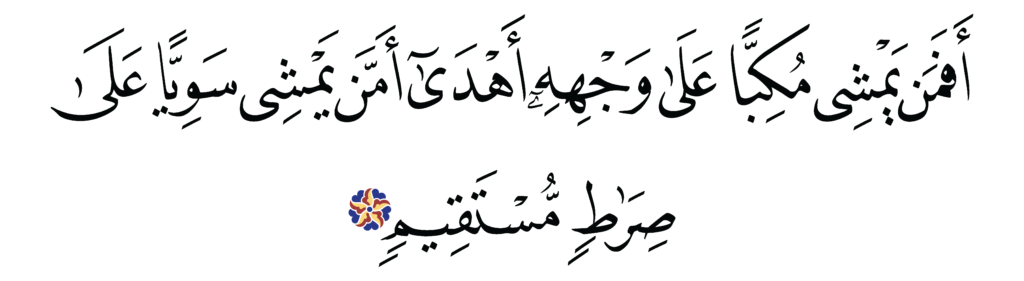 أَفَمَن يَمْشِى مُكِبًّا عَلَىٰ وَجْهِهِۦٓ أَهْدَىٰٓ أَمَّن يَمْشِى سَوِيًّا عَلَىٰ
صِرَٰطٍ مُّسْتَقِيمٍ